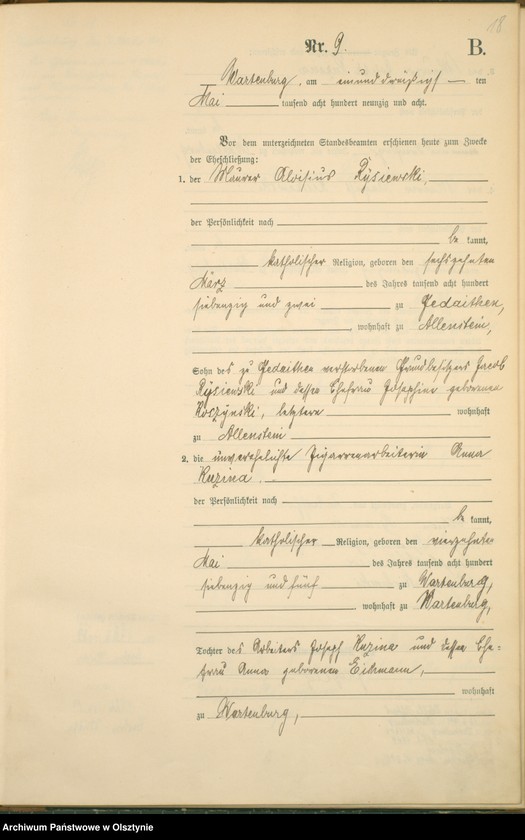 18
Nr. 9. B.
Wartenburg, am einunddreißigsten
Mai tausend acht hundert neunzig und acht.
Vor dem unterzeichneten Standesbeamten erschienen heute zum Zwecke
der Eheschließung:
1. der Maurer Aloisius Rysiewski,
der Persönlichkeit nach
be kannt,
katholischer Religion, geboren den sechszehnten
März des Jahres tausend acht hundert
siebenzig und zwei zu Gedaithen,
, wohnhaft zu Allenstein,
Sohn des zu Gedaithen verstorbenen Grundbesitzers Jacob
Rysiewski und dessen Ehefrau Josephine geborenen
Koszynski, letztere wohnhaft
zu Allenstein
2. die unverehelichte Zigarrenarbeiterin Anna
Kuzina.
der Persönlichkeit nach
be kannt,
katholischer Religion, geboren den vierzehnten
Mai des Jahres tausend acht hundert
siebenzig und fünf zu Wartenburg,
, wohnhaft zu Wartenburg,
Tochter des Arbeiters Joseph Kuzina und dessen Ehe=
frau Anna geborenen Eichmann,
wohnhaft
zu Wartenburg,
Archiwum Państwowe w Olsztynie